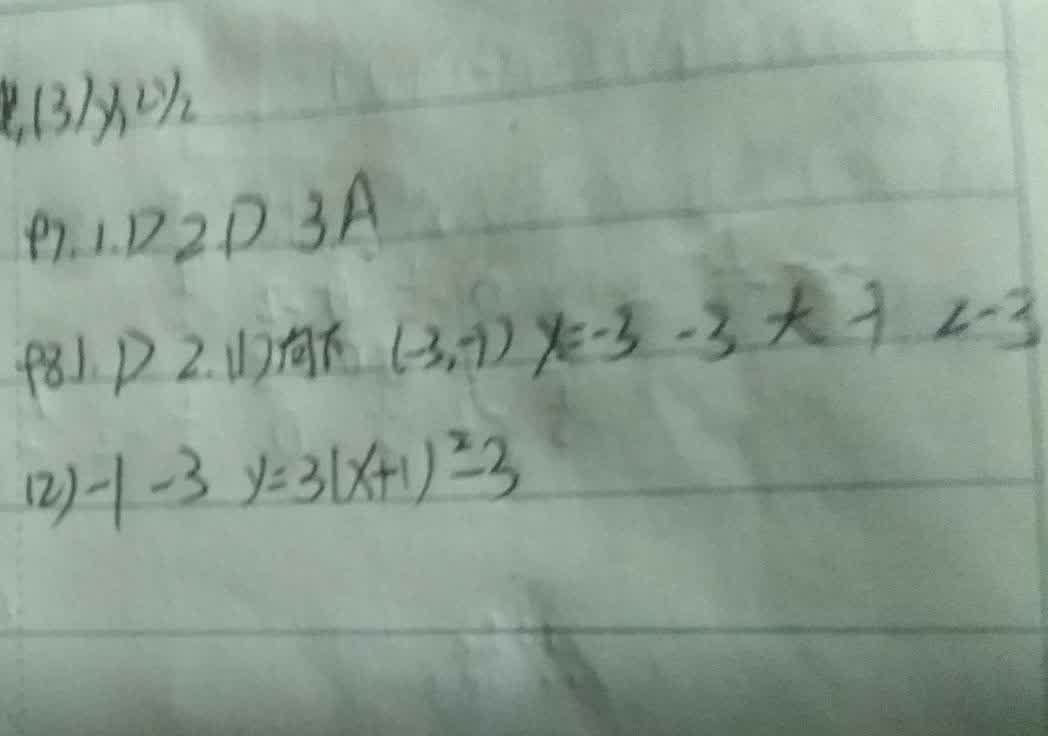 (3) y₁<y₂
P7. 1. D 2. D 3 A
P8 1. D 2. (1) 向下 (-3,-7) x=-3 -3 大 -7 <-3
(2) -1 -3 y=3(x+1)²-3